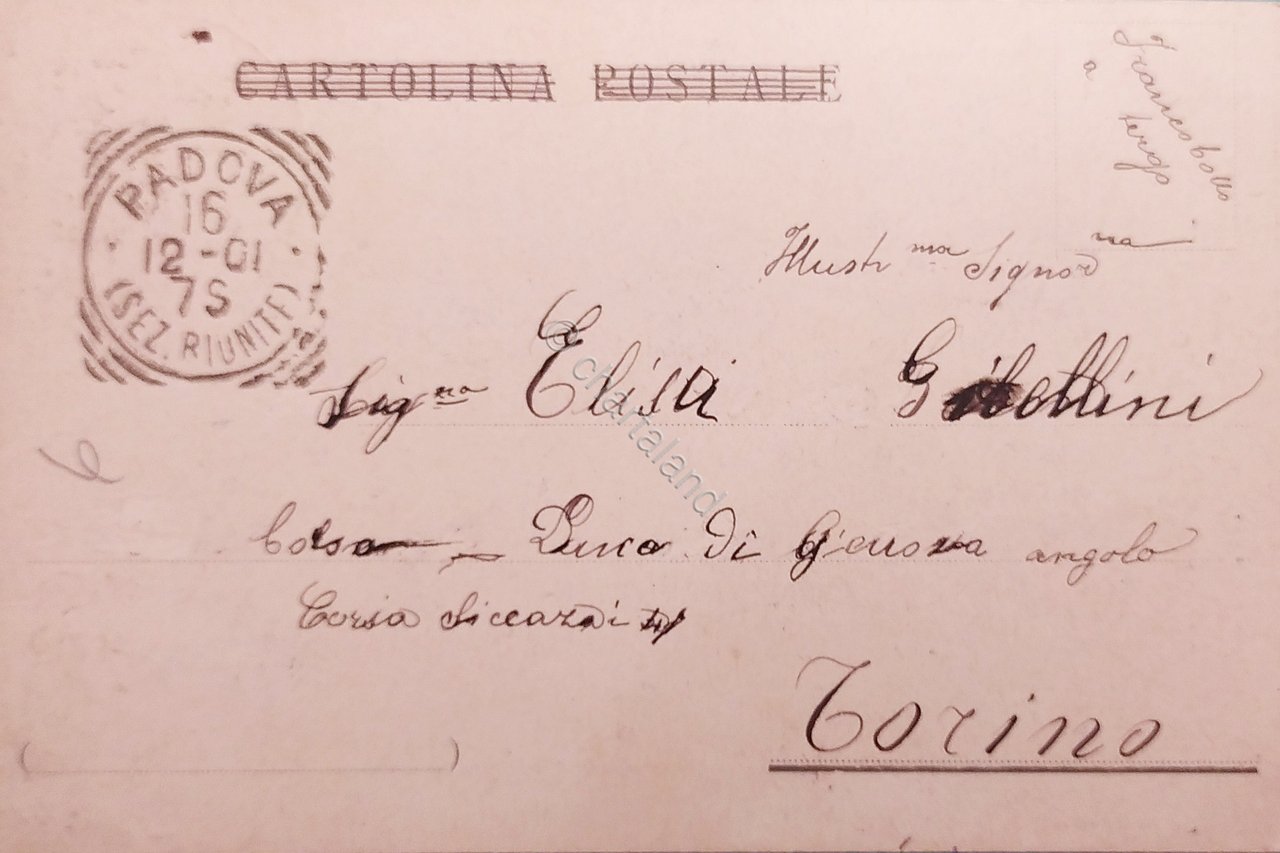 CARTOLINA POSTALE
Francobollo
a tergo
PADOVA
16
12-01
7S
(SEZ. RIUNITE)
Illustr ma Signor na
Sig na Elisa Gibellini
Corso Duca di Genova angolo
Corso Siccardi
Torino
© chartaland